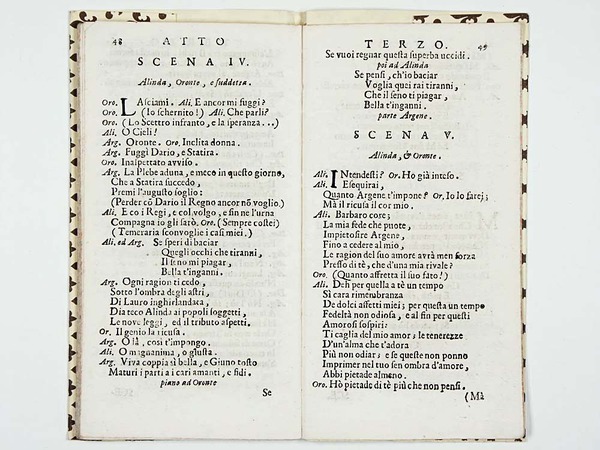 48 ATTO
SCENA IV.
Alinda, Oronte, e suddetta.
Oro. LAsciami. Ali. E ancor mi fuggi?
Oro. (Io schernito!) Ali. Che parli?
Oro. (Lo Scettro infranto, e la speranza...)
Ali. O Cieli!
Arg. Oronte. Oro. Inclita donna.
Arg. Fuggì Dario, e Statira.
Oro. Inaspettato avviso.
Arg. La Plebe aduna, e meco in questo giorno,
Che a Statira succedo,
Premi l'augusto soglio:
(Perder cō Dario il Regno ancor nō voglio.)
Ali. E co i Regi, e col volgo, e fin ne l'urna
Compagna io gli sarò. Oro. (Sempre costei)
(Temeraria sconvoglie i casi miei.)
Ali. ed Arg. Se speri di baciar
Quegli occhi che tiranni,
Il seno mi piagar,
Bella t'inganni.
Arg. Ogni ragion ti cedo,
Sotto l'ombra degli astri,
Di Lauro inghirlandata,
Dia teco Alinda ai popoli soggetti,
Le nove leggi, ed il tributo aspetti.
Or. Il genio la ricusa.
Arg. O là, così t'impongo.
Ali. O magnanima, o giusta.
Arg. Viva coppia sì bella, e Giuno tosto
Maturi i parti a i cari amanti, e fidi.
piano ad Oronte
Se
TERZO. 49
Se vuoi regnar questa superba uccidi.
poi ad Alinda
Se pensi, ch'io baciar
Voglia quei rai tiranni,
Che il seno ti piagar,
Bella t'inganni.
parte Argene.
SCENA V.
Alinda, & Oronte.
Ali. INtendesti? Or. Hò già inteso.
Ali. Eseguirai,
Quanto Argene t'impone? Or. Io lo farei;
Mà il ricusa il cor mio.
Ali. Barbaro core;
La mia fede che puote,
Impietosire Argene,
Fino a cedere al mio,
Le ragion del suo amore avrà men forza
Presso di tè, che d'una mia rivale?
Oro. (Quanto affretta il suo fato!)
Ali. Deh per quella a tè un tempo
Sì cara rimembranza
De dolci affetti miei; per questa un tempo
Fedeltà non odiosa, e al fin per questi
Amorosi sospiri:
Ti caglia del mio amor; le tenerezze
D'un'alma che t'adora
Più non odiar; e se queste non ponno
Imprimer nel tuo sen ombra d'amore,
Abbi pietade almeno.
Oro. Hò pietade di tè più che non pensi.
(Mà